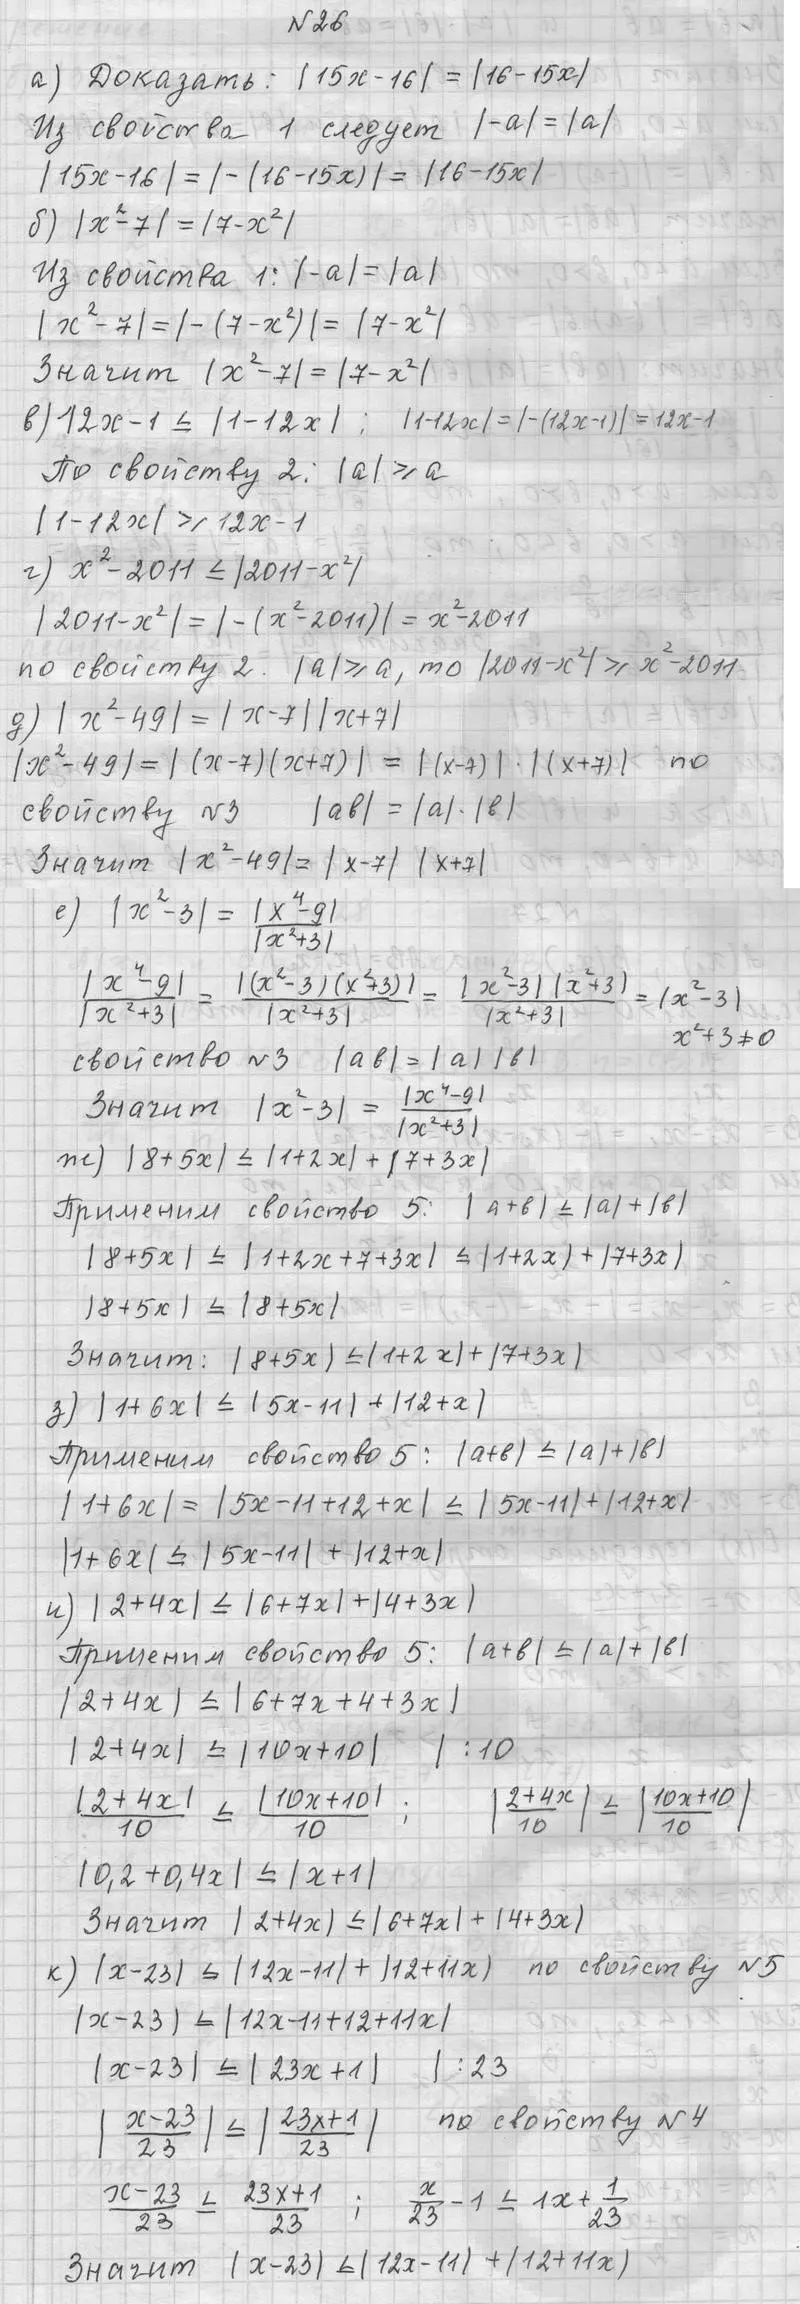 №26
а) Доказать: |15x-16| = |16-15x|
Из свойства 1 следует |-a| = |a|
|15x-16| = |-(16-15x)| = |16-15x|
б) |x²-7| = |7-x²|
Из свойства 1: |-a| = |a|
|x²-7| = |-(7-x²)| = |7-x²|
Значит |x²-7| = |7-x²|
в) 12x-1 ≤ |1-12x| ; |1-12x| = |-(12x-1)| = 12x-1
По свойству 2: |a| ⩾ a
|1-12x| ⩾ 12x-1
г) x²-2011 ≤ |2011-x²|
|2011-x²| = |-(x²-2011)| = x²-2011
по свойству 2. |a| ⩾ a, то |2011-x²| ⩾ x²-2011
д) |x²-49| = |x-7| |x+7|
|x²-49| = |(x-7)(x+7)| = |(x-7)| · |(x+7)| по
свойству №3 |ab| = |a| · |b|
Значит |x²-49| = |x-7| |x+7|
е) |x²-3| = |x⁴-9| / |x²+3|
|x⁴-9| / |x²+3| = |(x²-3)(x²+3)| / |x²+3| = |x²-3| |x²+3| / |x²+3| = |x²-3|
x²+3≠0
свойство №3 |ab| = |a| |b|
Значит |x²-3| = |x⁴-9| / |x²+3|
ж) |8+5x| ≤ |1+2x| + |7+3x|
Применим свойство 5: |a+b| ≤ |a| + |b|
|8+5x| ≤ |1+2x+7+3x| ≤ |1+2x| + |7+3x|
|8+5x| ≤ |8+5x|
Значит: |8+5x| ≤ |1+2x| + |7+3x|
з) |1+6x| ≤ |5x-11| + |12+x|
Применим свойство 5: |a+b| ≤ |a| + |b|
|1+6x| = |5x-11+12+x| ≤ |5x-11| + |12+x|
|1+6x| ≤ |5x-11| + |12+x|
и) |2+4x| ≤ |6+7x| + |4+3x|
Применим свойство 5: |a+b| ≤ |a| + |b|
|2+4x| ≤ |6+7x+4+3x|
|2+4x| ≤ |10x+10| | :10
|2+4x| / 10 ≤ |10x+10| / 10 ; |(2+4x)/10| ≤ |(10x+10)/10|
|0,2+0,4x| ≤ |x+1|
Значит |2+4x| ≤ |6+7x| + |4+3x|
к) |x-23| ≤ |12x-11| + |12+11x| по свойству №5
|x-23| ≤ |12x-11+12+11x|
|x-23| ≤ |23x+1| | :23
|(x-23)/23| ≤ |(23x+1)/23| по свойству №4
(x-23)/23 ≤ (23x+1)/23 ; x/23 - 1 ≤ 1x + 1/23
Значит |x-23| ≤ |12x-11| + |12+11x|